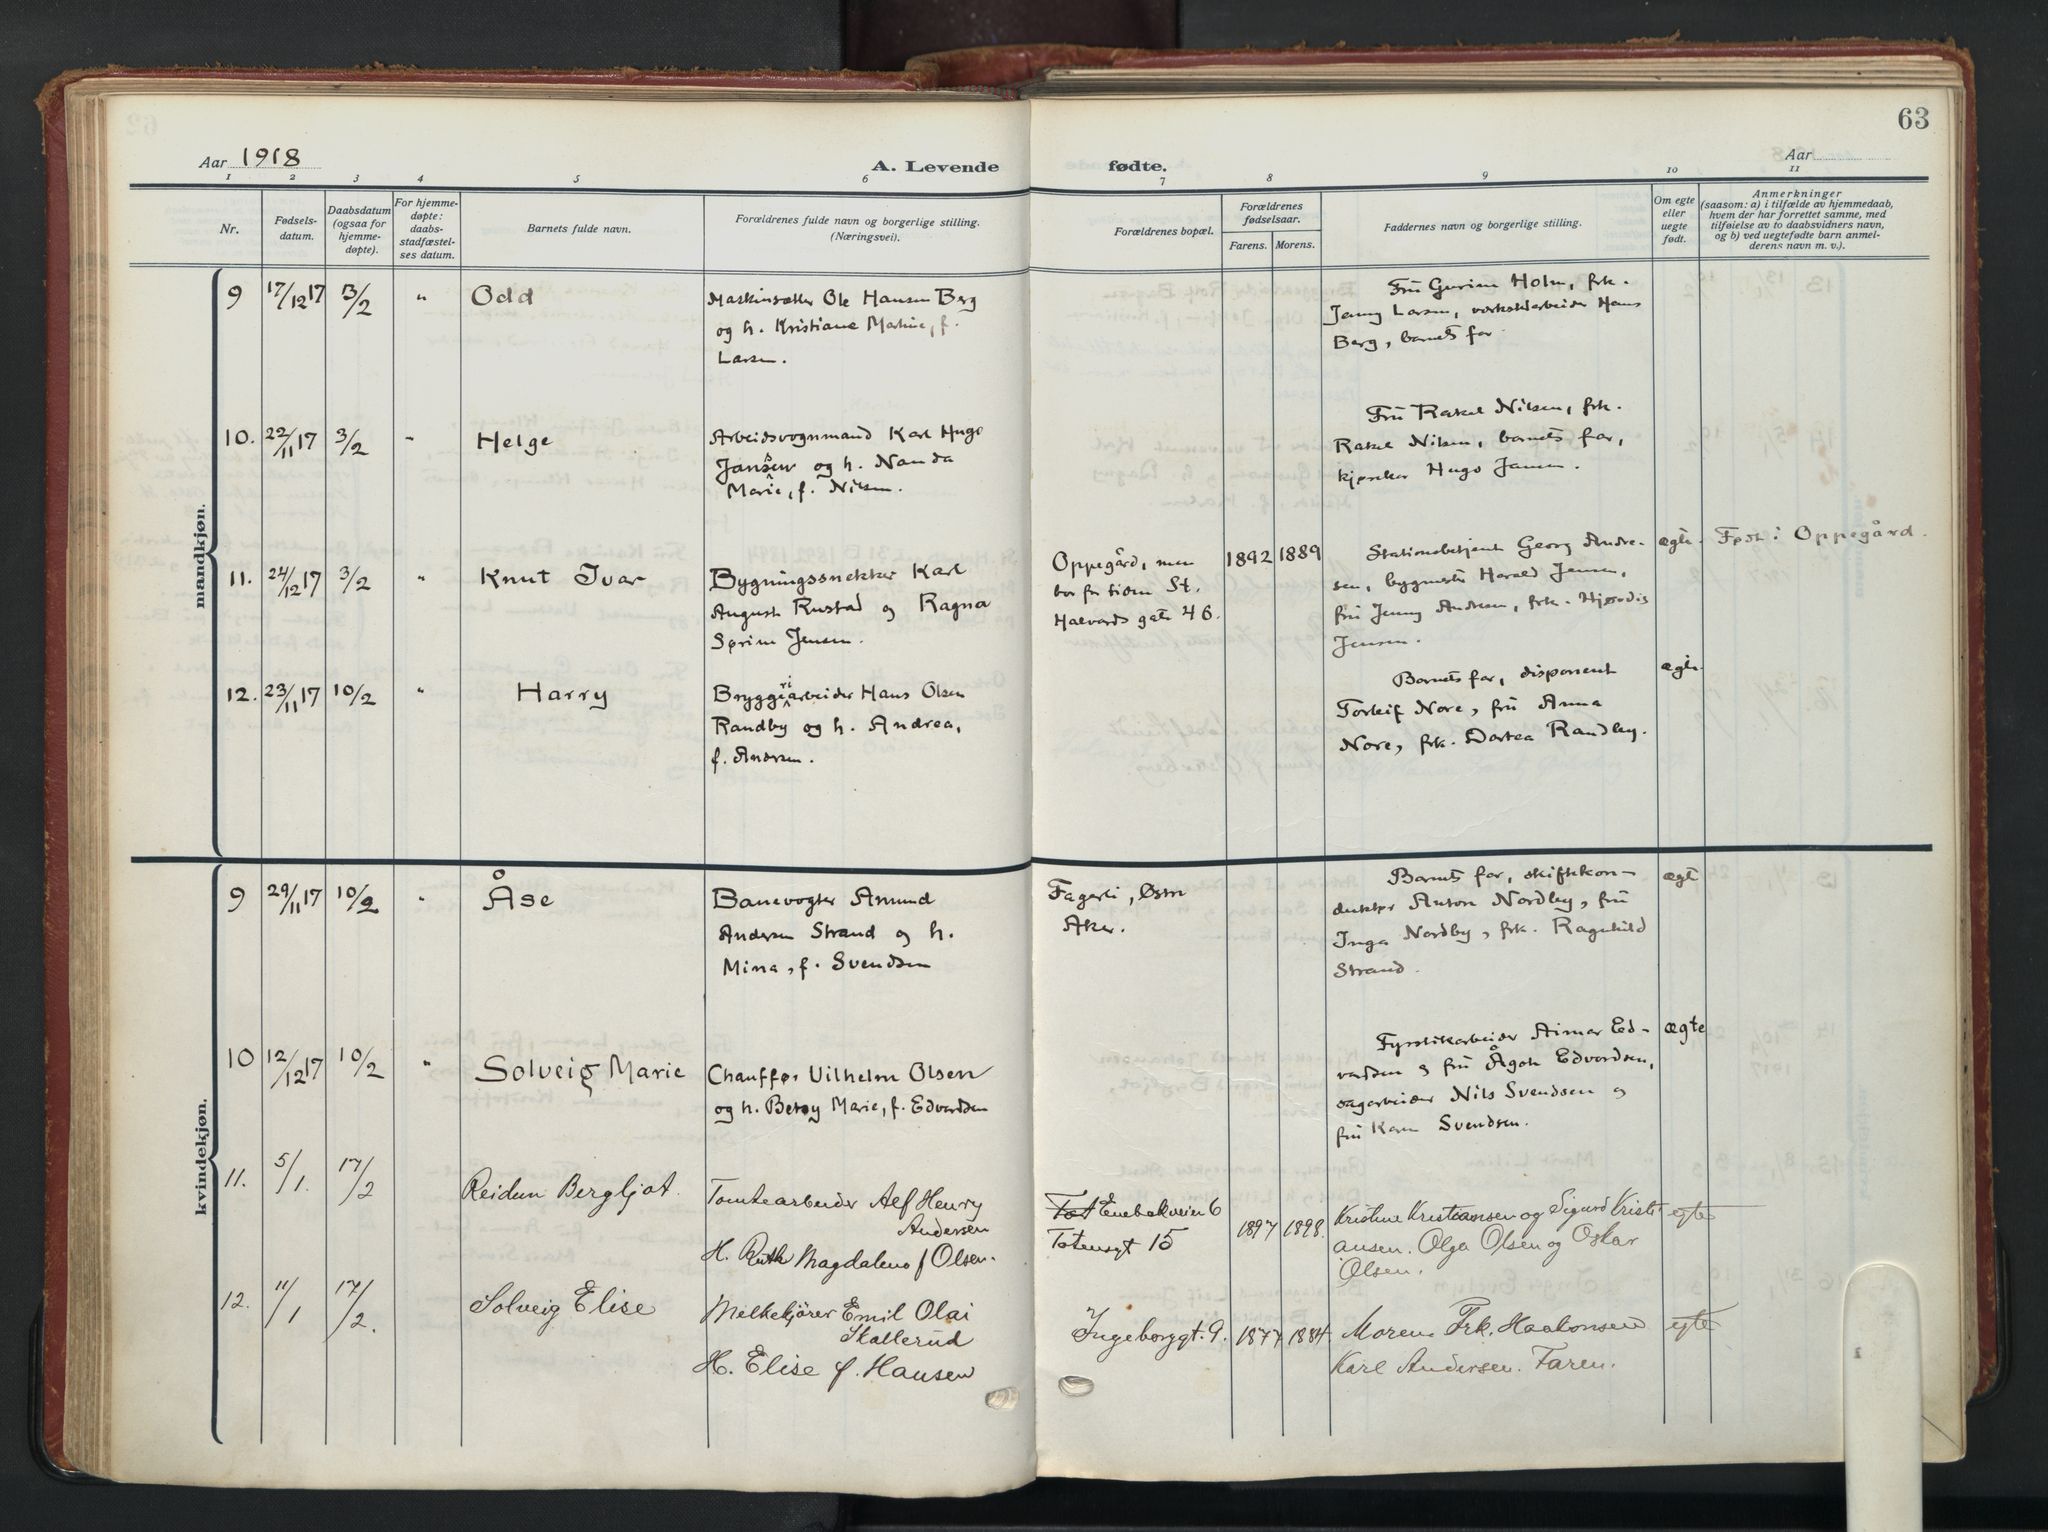 63
Aar 1918
A. Levende
fødte.
Aar
1 2 3 4 5 6 7 8 9 10 11
Nr.
Fødsels-
datum.
Daabsdatum
(ogsaa for
hjemme-
døpte).
For hjemme-
døpte:
daabs-
stadfæstel-
ses datum.
Barnets fulde navn.
Forældrenes fulde navn og borgerlige stilling.
(Næringsvei).
Forældrenes bopæl.
Forældrenes
fødselsaar.
Farens. Morens.
Faddernes navn og borgerlige stilling.
Om egte
eller
uegte
født.
Anmerkninger
(saasom: a) i tilfælde av hjemmedaab,
hvem der har forrettet samme, med
tilføielse av to daabsvidners navn,
og b) ved uegtefødte barn anmel-
derens navn m. v.).
mandkjøn.
9 17/12 17 13/2 " Odd
Maskinsætter Ole Hansen Berg
og h. Kristiane Marie, f.
Larsen.
Fru Gurine Holm, frk.
Jenny Larsen, verkstedarbeider Hans
Berg, barnets far
10. 22/11 17 3/2 " Helge
Arbeidsvognmand Karl Hugo
Jansen og h. Nanda
Marie, f. Nilsen.
Fru Rakel Nilsen, frk.
Rakel Nilsen, barnets far,
kjørekar Hugo Jansen.
11. 24/12 17 3/2 " Knut Ivar
Bygningssnekker Karl
August Rustad og Ragna
Sørine Jensen.
Oppegård, men
bor for tiden St.
Halvards gate 46.
1892 1889
Stationsbetjent Georg Andre-
sen, bygmester Harald Jensen,
fru Jenny Andresen, frk. Hjørdis
Jensen.
ægte
Født i Oppegård.
12. 23/11 17 10/2 " Harry
Bryggeriarbeider Hans Olsen
Randby og h. Andrea,
f. Andersen.
Barnets far, disponent
Torleif Nore, fru Anna
Nore, frk. Dortea Randby.
ægte
kvindekjøn.
9 29/11 17 10/2 " Åse
Banevogter Amund
Andersen Strand og h.
Mina, f. Svendsen
Fagerli, Østre
Aker.
Barnets far, skiftekon-
duktør Anton Nordby, fru
Inga Nordby, frk. Ragnhild
Strand.
ægte
10 12/12 17 10/2 " Solveig Marie
Chauffør Vilhelm Olsen
og h. Betsy Marie, f. Edvardsen
Fyrstikarbeider Aimar Ed-
vardsen og fru Ågot Edvardsen,
sagarbeider Nils Svendsen og
fru Karen Svendsen.
ægte
11. 5/1. 17/2 Reidun Bergljot.
Tomtearbeider Alf Henry
Andersen
H. Ruth Magdalena f Olsen.
Tot Enebakveien 6
Totensgt 15
1897 1898.
Kristine Kristiansen og Sigurd Kristi-
ansen. Olga Olsen og Oskar
Olsen.
egte
12. 11/1 17/2. Solveig Elise
Melkekjører Emil Olai
Skallerud
H. Elise f. Hansen
Ingeborggt. 9.
1877 1884.
Moren Frk. Haakonsen
Karl Andersen. Faren.
egte